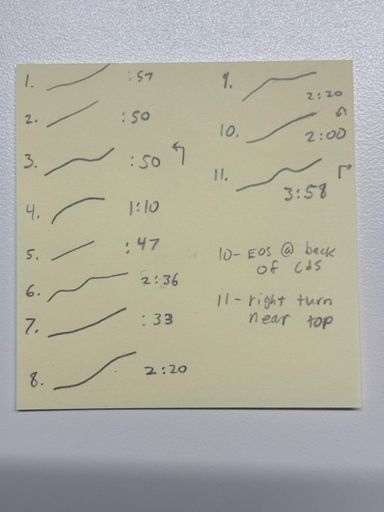 1. :57
2. :50
3. :50
4. 1:10
5. :47
6. 2:36
7. :33
8. 2:20
9. 2:20
10. 2:00
11. 3:58
10- EOS @ back
of CDS
11- right turn
near top